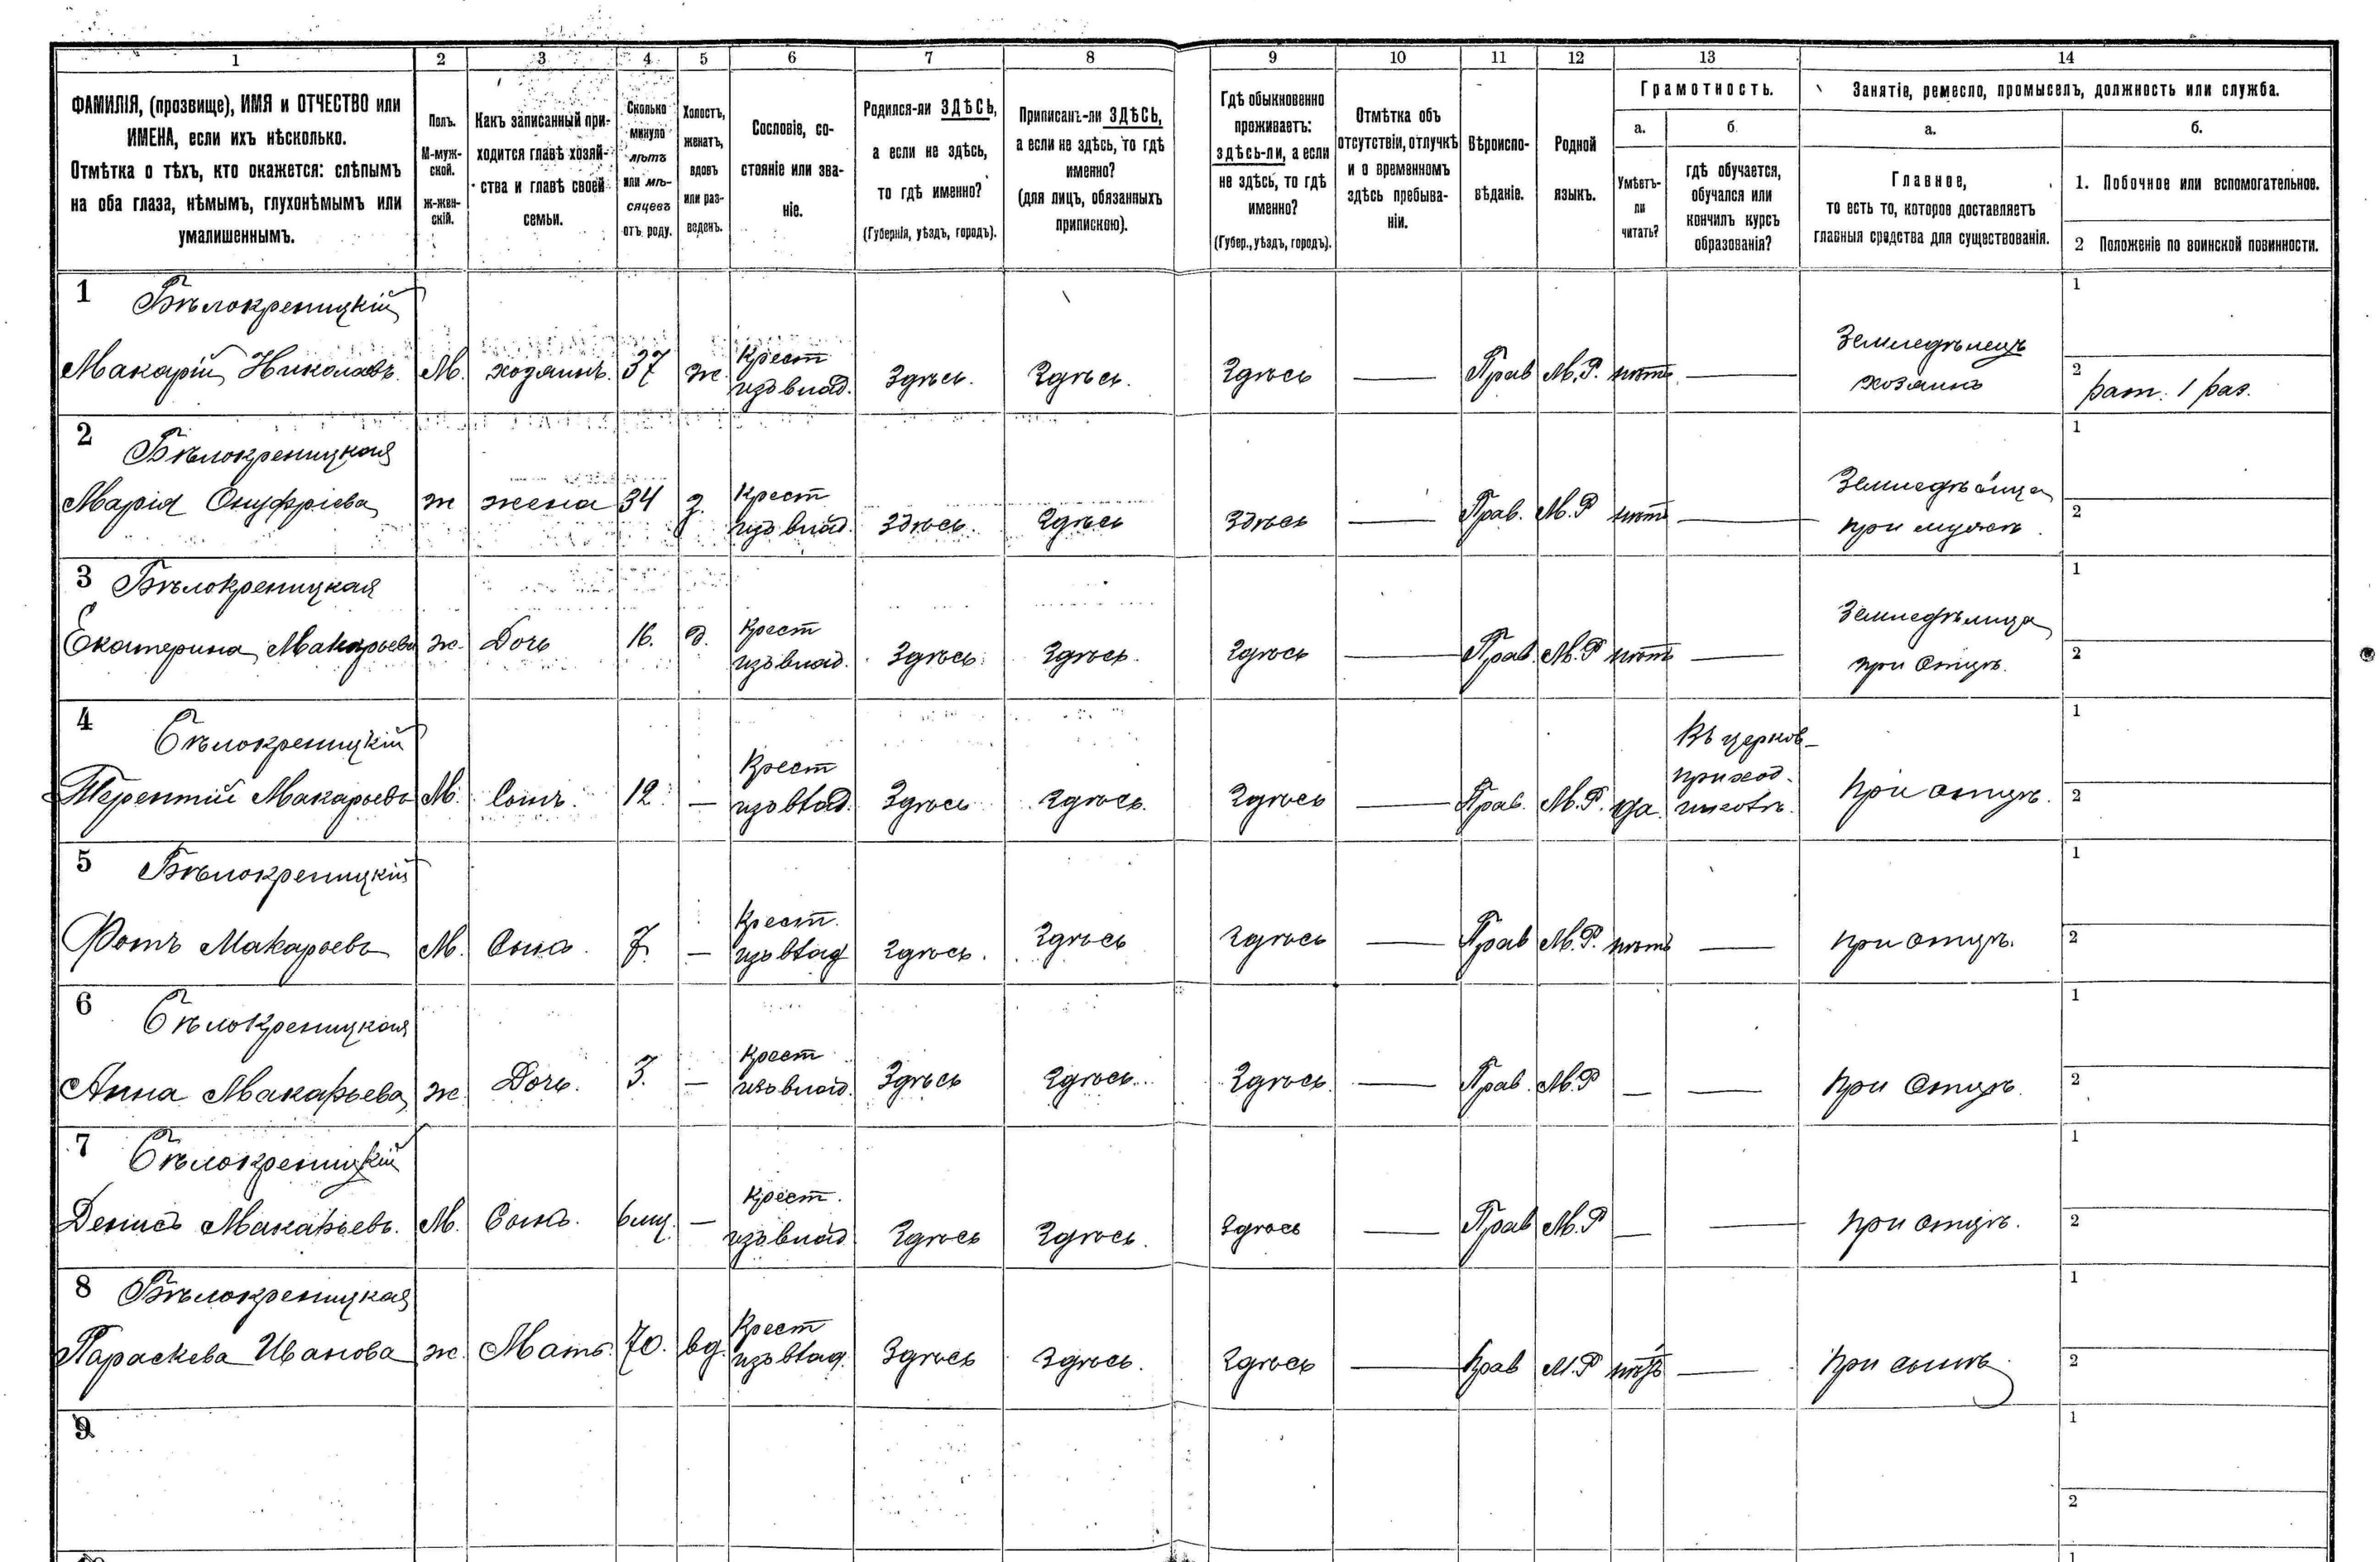 1 2 3 4 5 6 7 8 9 10 11 12 13 14
ФАМИЛІЯ, (прозвище), ИМЯ и ОТЧЕСТВО или
ИМЕНА, если ихъ нѣсколько.
Отмѣтка о тѣхъ, кто окажется: слѣпымъ
на оба глаза, нѣмымъ, глухонѣмымъ или
умалишеннымъ.
Полъ.
М-муж-
ской.
Ж-жен-
скій.
Какъ записанный при-
ходится главѣ хозяй-
ства и главѣ своей
семьи.
Сколько
минуло
лѣтъ
или мѣ-
сяцевъ
отъ роду.
Холостъ,
женатъ,
вдовъ
или раз-
веденъ.
Сословіе, со-
стояніе или зва-
ніе.
Родился-ли ЗДѢСЬ,
а если не здѣсь,
то гдѣ именно?
(Губернія, уѣздъ, городъ).
Приписанъ-ли ЗДѢСЬ,
а если не здѣсь, то гдѣ
именно?
(для лицъ, обязанныхъ
припискою).
Гдѣ обыкновенно
проживаетъ:
здѣсь-ли, а если
не здѣсь, то гдѣ
именно?
(Губер., уѣздъ, городъ).
Отмѣтка объ
отсутствіи, отлучкѣ
и о временномъ
здѣсь пребыва-
ніи.
Вѣроиспо-
вѣданіе.
Родной
языкъ.
Грамотность.
а.
Умѣетъ-
ли
читать?
б.
гдѣ обучается,
обучался или
кончилъ курсъ
образованія?
Занятіе, ремесло, промыселъ, должность или служба.
а.
Главное,
то есть то, которое доставляетъ
главныя средства для существованія.
б.
1. Побочное или вспомогательное.
2 Положеніе по воинской повинности.
1 Бѣлокреницкій
Макарій Николаевъ.
М.
хозяинъ.
37
ж.
Крест
изъ влад.
Здѣсь.
Здѣсь.
Здѣсь
—
Прав
М.Р.
нѣтъ
—
Земледѣлецъ
хозяинъ
1
2
рат. 1 раз.
2 Бѣлокреницкая
Марія Онуфріева
ж
жена
34
з.
Крест
изъ влад.
Здѣсь.
Здѣсь
Здѣсь
—
Прав.
М.Р
нѣтъ
—
Земледѣлица
при мужѣ.
1
2
3 Бѣлокреницкая
Екатерина Макарьева
ж.
Дочь
16.
д.
Крест
изъ влад.
Здѣсь.
Здѣсь.
Здѣсь
—
Прав.
М.Р
нѣтъ
—
Земледѣлица
при отцѣ.
1
2
4 Бѣлокреницкій
Терентій Макарьевъ
М.
Сынъ.
12.
—
Крест
изъ влад.
Здѣсь
Здѣсь.
Здѣсь
—
Прав.
М.Р.
да.
Въ церков-
приход.
школѣ.
При отцѣ.
1
2
5 Бѣлокреницкій
Фотъ Макарьевъ
М.
Сынъ.
7.
—
Крест.
изъ влад
Здѣсь.
Здѣсь
Здѣсь
—
Прав
М.Р.
нѣтъ
—
при отцѣ.
1
2
6 Бѣлокреницкая
Анна Макарьева
ж.
Дочь.
3.
—
Крест
изъ влад.
Здѣсь
Здѣсь.
Здѣсь.
—
Прав.
М.Р
—
—
При Отцѣ.
1
2
7 Бѣлокреницкій
Денисъ Макарьевъ.
М.
Сынъ.
6 мц.
—
Крест.
изъ влад
Здѣсь
Здѣсь.
Здѣсь
—
Прав
М.Р
—
—
При отцѣ.
1
2
8 Бѣлокреницкая
Параскева Иванова
ж.
Мать.
70.
вд.
Крест
изъ влад.
Здѣсь
Здѣсь.
Здѣсь
—
Прав
М.Р
нѣтъ
—
При сынѣ
1
2
9
1
2
1